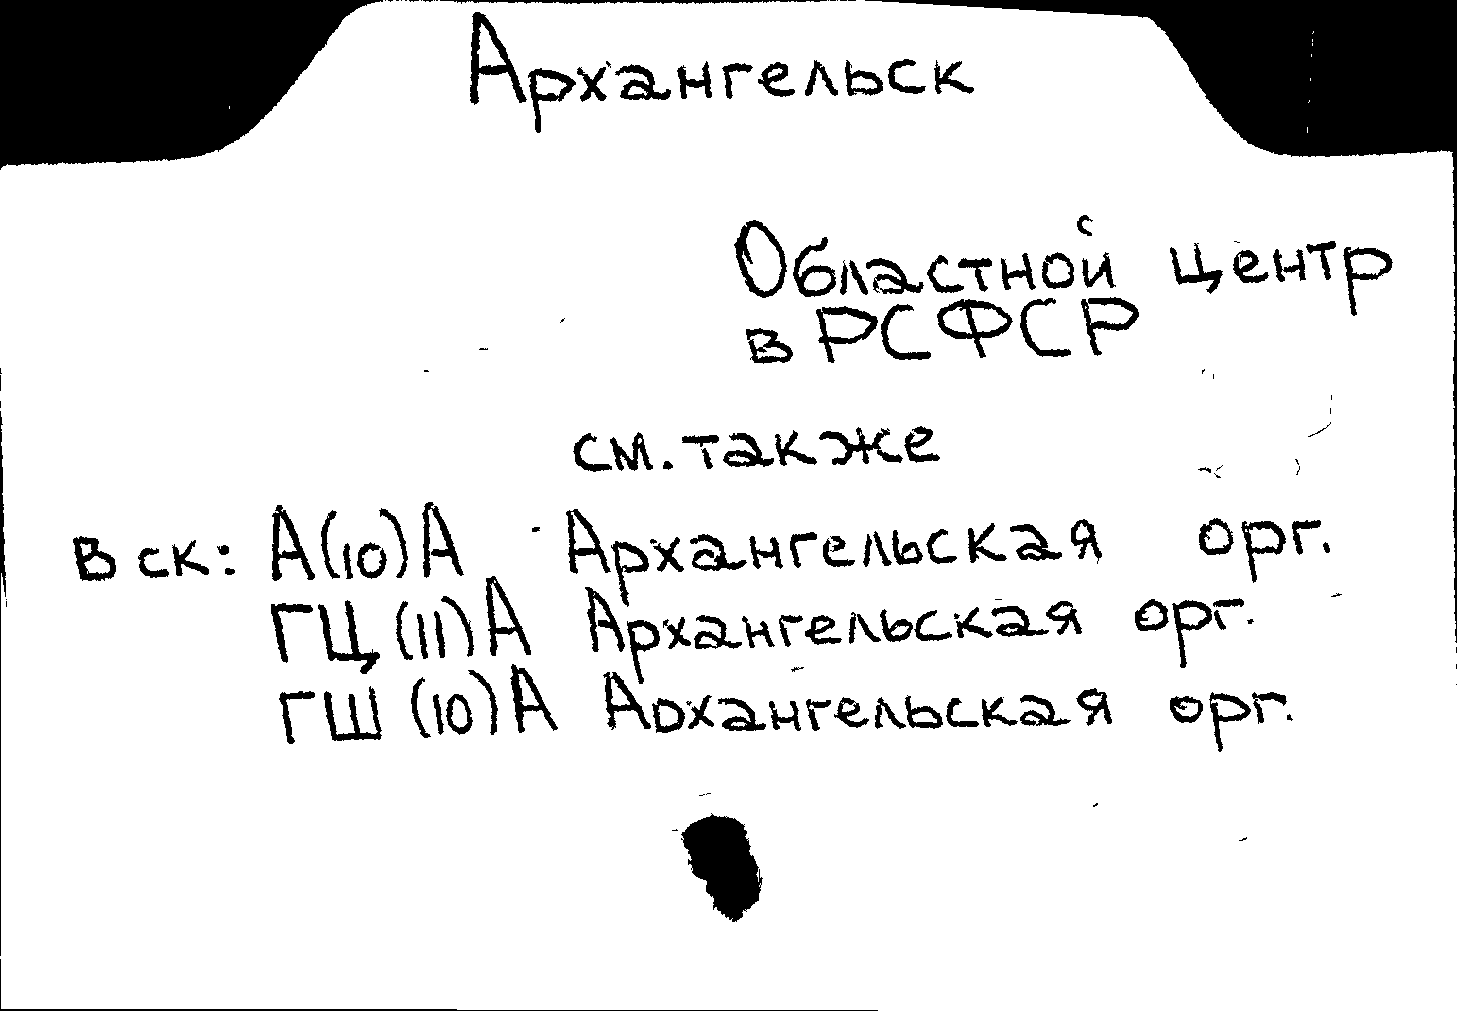 Архангельск
Областной центр
в РСФСР
см. также
В ск: А(10)А Архангельская орг.
ГЦ(11)А Архангельская орг.
ГШ(10)А Архангельская орг.